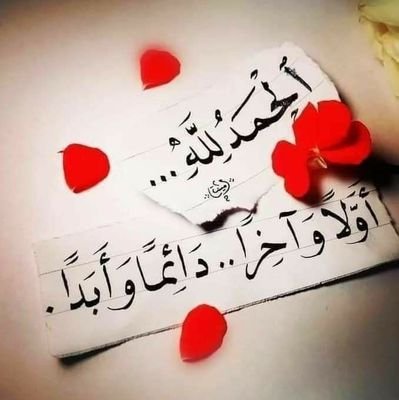 اَلْحَمْدُ لِلّٰهِ...
أَوَّلًا وَآخِرًا.. دَائِمًا وَأَبَدًا.